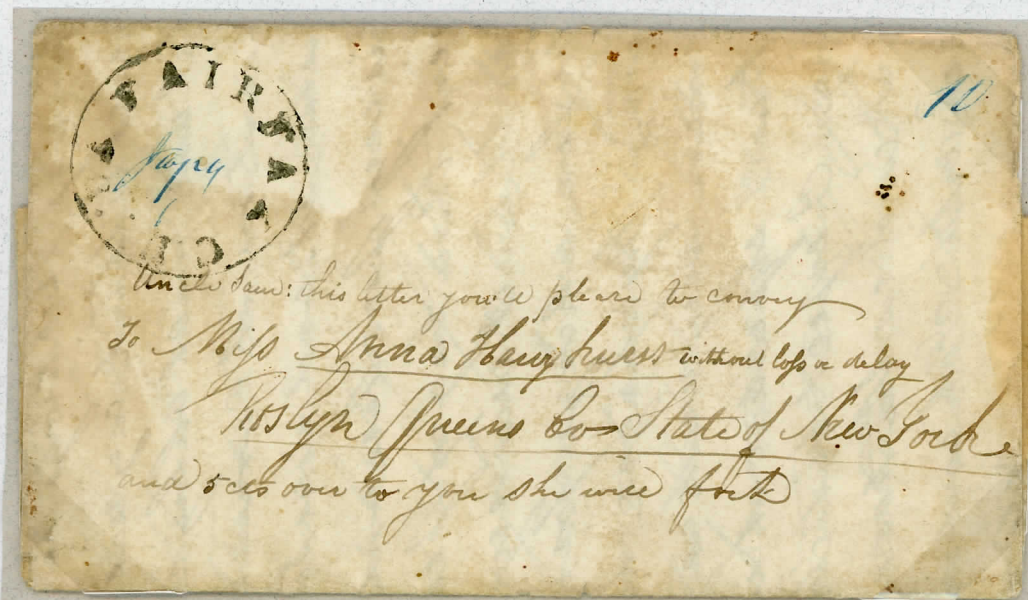 FAIRFAX C.H. VA
10
Uncle Sam: this letter you'll please to convey
To Miss Anna Hauxhurst without loss or delay
Roslyn Queens Co State of New York
and 5 cts over to you she will fork